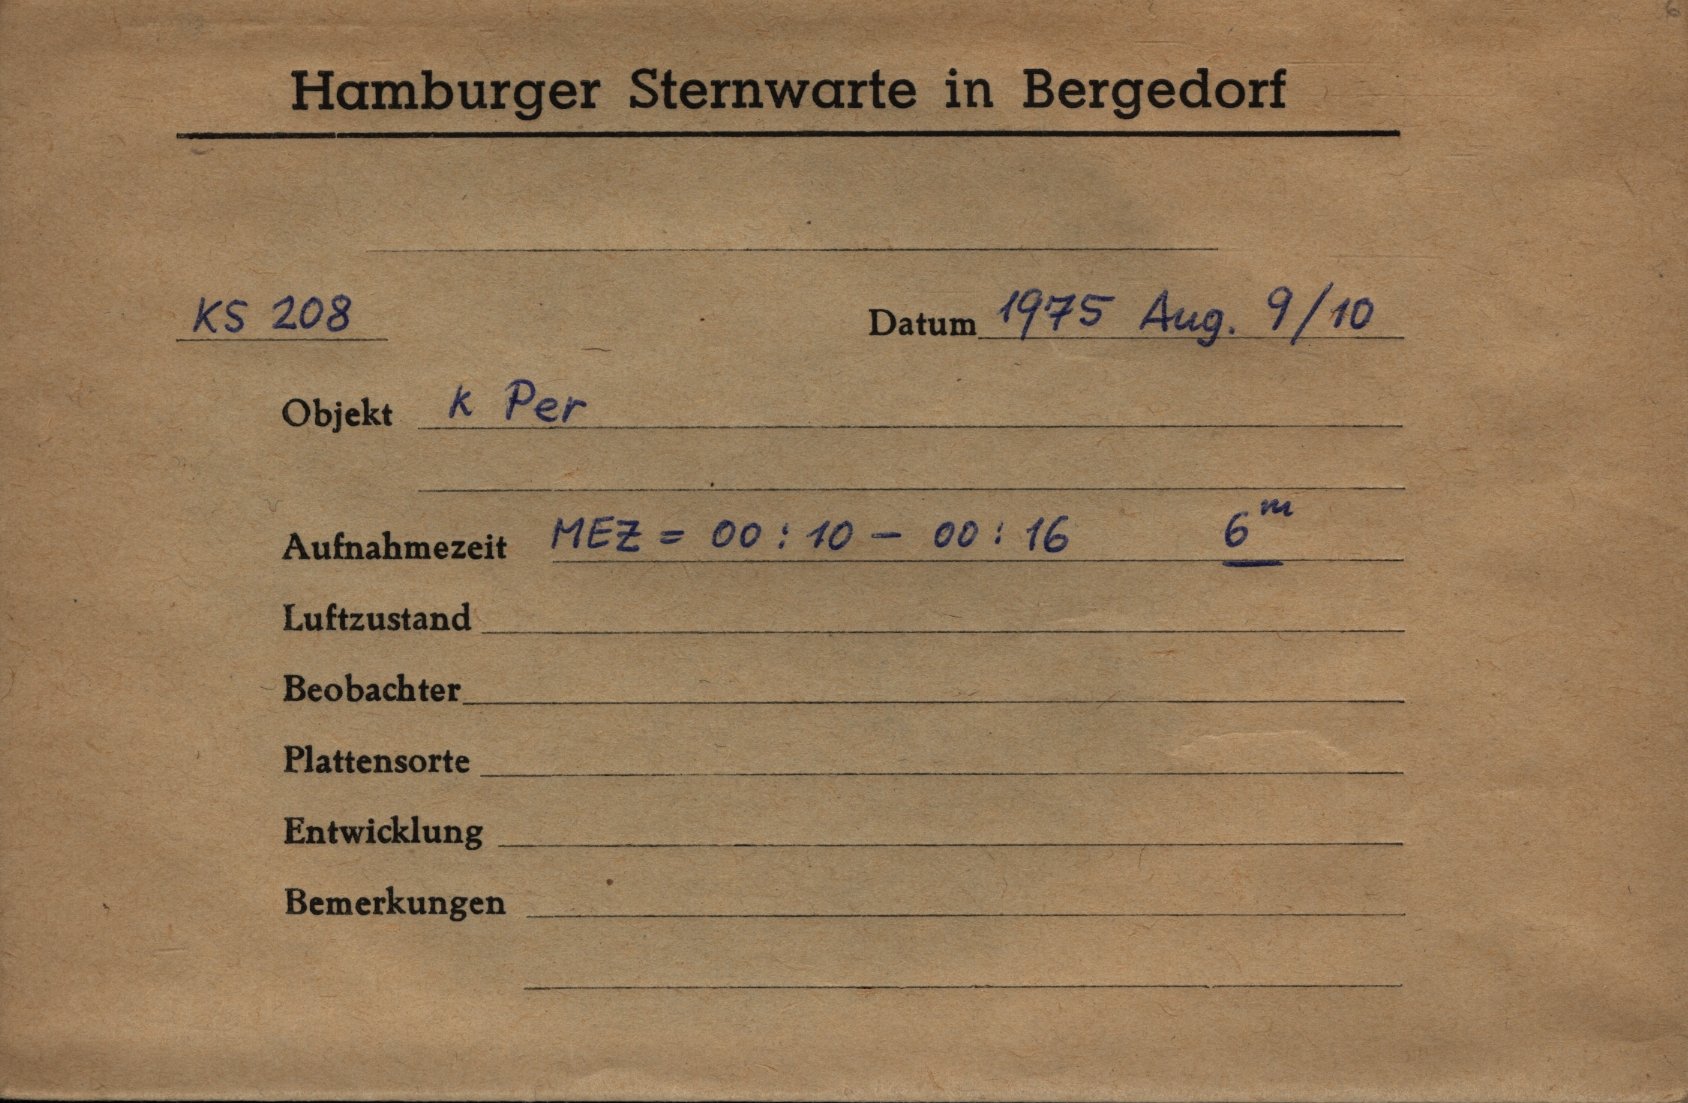 Hamburger Sternwarte in Bergedorf
KS 208 Datum 1975 Aug. 9/10
Objekt k Per
Aufnahmezeit MEZ = 00:10 – 00:16 6ᵐ
Luftzustand
Beobachter
Plattensorte
Entwicklung
Bemerkungen